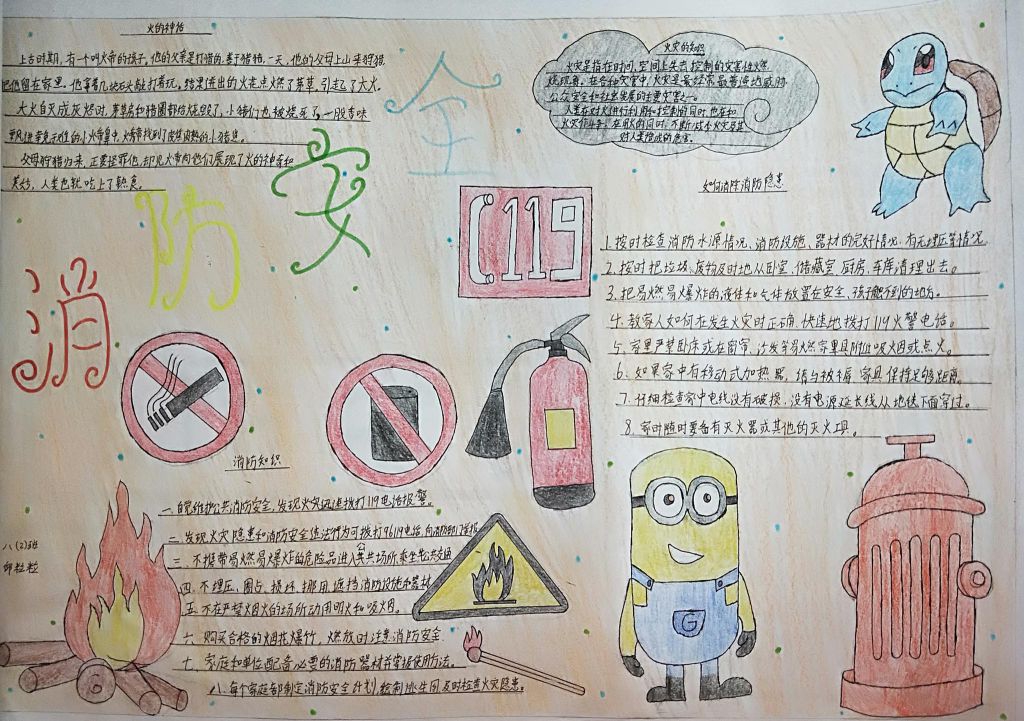 火的神话
上古时期,有一个叫火帝的孩子,他的父亲是打猎的,善于猎猪,一天,他的父母上山来狩猎
把他留在家里,他拿着几块石头敲打着玩,结果迸出的火花点燃了茅草,引起了大火。
大火自灭成灰烬时,草房和猪圈都给烧毁了,小猪们也被烧死了,一股香味
父母狩猎归来,正要怪罪他,却见火帝向他们展现了火的神奇和
美妙,人类也就吃上了熟食。
火灾的知识
火灾是指在时间、空间上失去控制的灾害性燃
烧现象。在各种灾害中,火灾是最经常最普遍地威胁
公众安全和社会发展的主要灾害之一。
人类在对火进行利用和控制的同时,也在和
火灾作斗争,在用火的同时,不断减小火灾及其
对人类造成的危害。
全
安
防
消
119
如何消除消防隐患
1.按时检查消防水源情况、消防设施、器材的完好情况,有无埋压等情况
2.按时把垃圾、废物及时地从卧室、储藏室、厨房、车库清理出去。
3.把易燃易爆炸的液体和气体放置在安全、孩子触不到的地方。
4.教家人如何在发生火灾时正确、快速地拨打119火警电话。
5、家里严禁卧床或在窗帘、沙发等易燃家具附近吸烟或点火。
6、如果家中有移动式加热器,请与被褥、家具保持足够距离。
7.仔细检查家中电线没有破损,没有电源延长线从地毯下面穿过。
8.家时随时要备有灭火器或其他的灭火工具。
消防知识
一.自觉维护公共消防安全,发现火灾迅速拨打119电话报警。
二、发现火灾隐患和消防安全违法行为可拨打96119电话,向消防部门举报
三、不携带易燃易爆炸的危险品进入公共场所,乘坐公共交通
四、不埋压、圈占、损坏、挪用、遮挡消防设施和器材
五、不在严禁烟火的场所动用明火和吸烟。
六、购买合格的烟花爆竹,燃放时注意消防安全
七、家庭和单位配备必要的消防器材并掌握使用方法。
八、每个家庭都制定消防安全计划,绘制逃生图,及时检查火灾隐患。
八(2)班
G